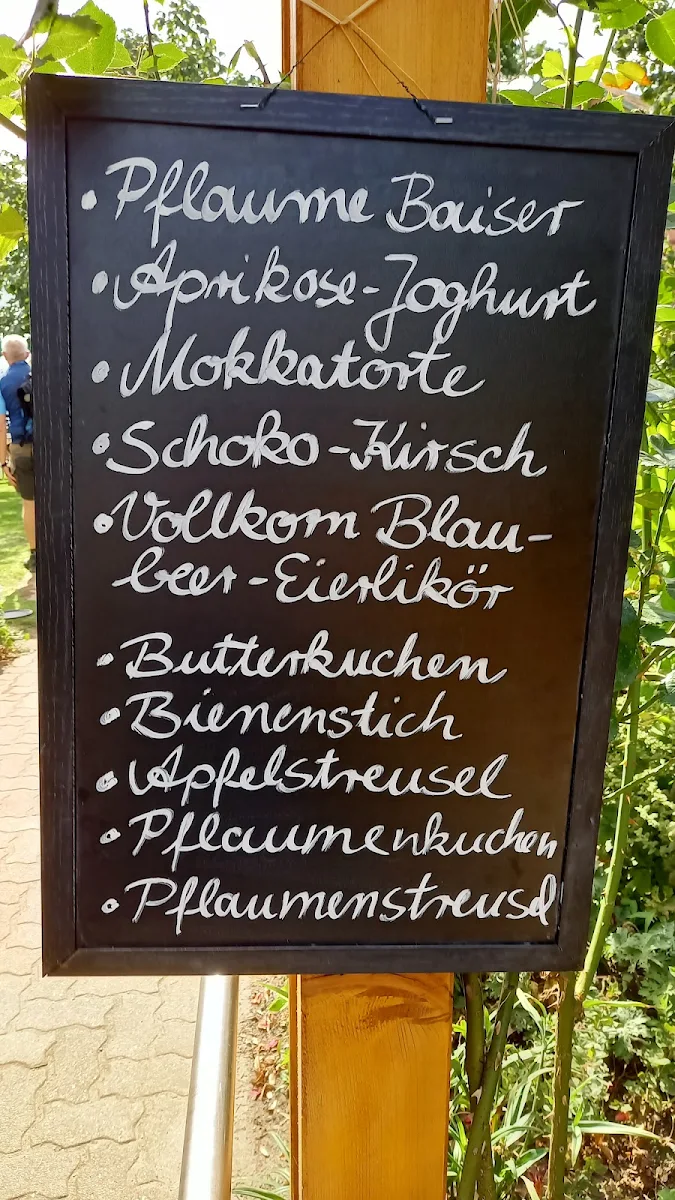 • Pflaume Baiser
• Aprikose-Joghurt
• Mokkatorte
• Schoko-Kirsch
• Vollkorn Blau-
beer-Eierlikör
• Butterkuchen
• Bienenstich
• Apfelstreusel
• Pflaumenkuchen
• Pflaumenstreusel